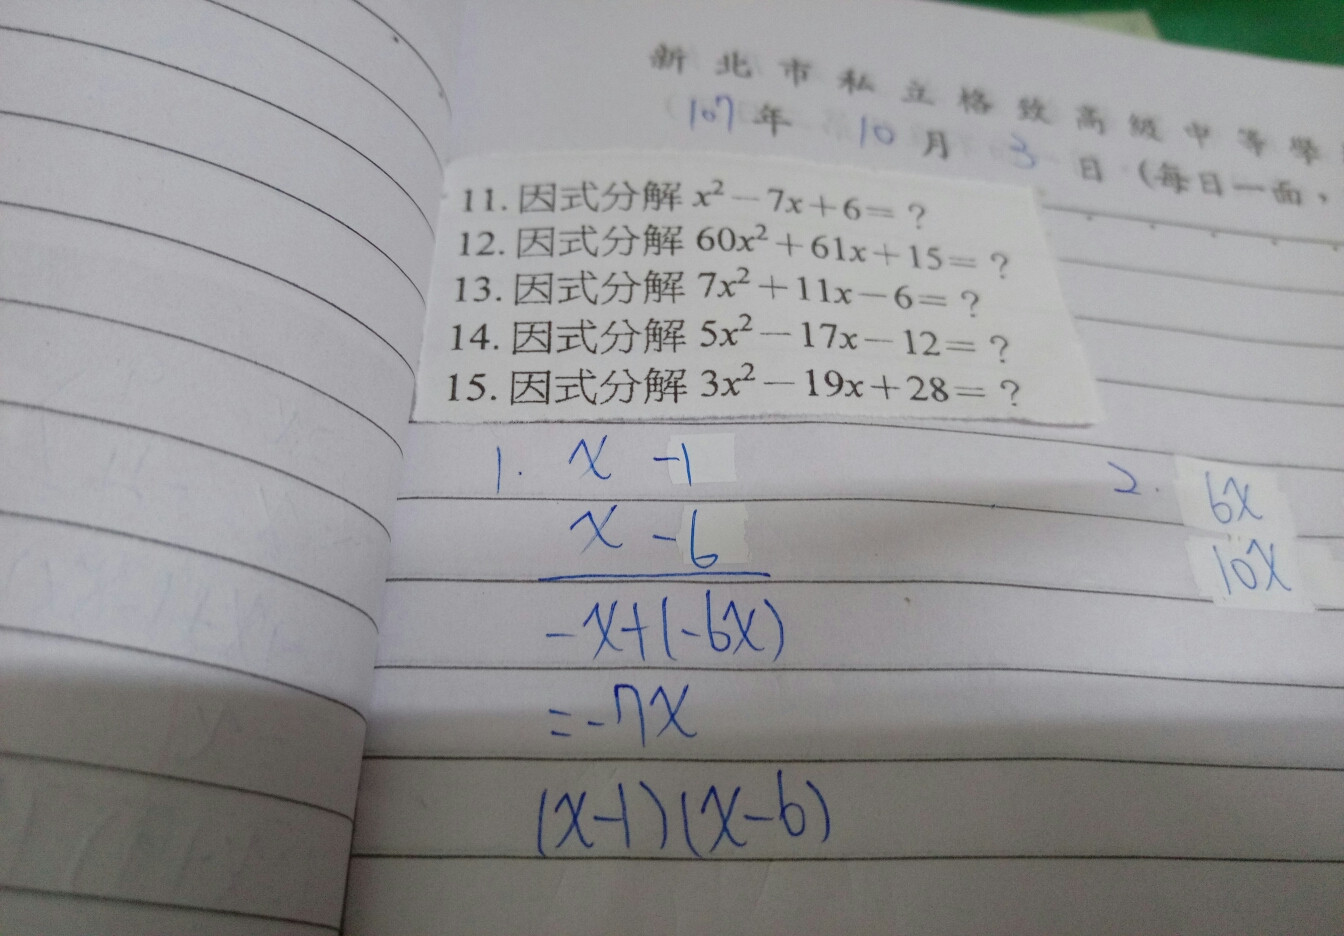 新北市私立格致高級中等學
107年 10月 3日(每日一面,
11. 因式分解 x²－7x＋6＝？
12. 因式分解 60x²＋61x＋15＝？
13. 因式分解 7x²＋11x－6＝？
14. 因式分解 5x²－17x－12＝？
15. 因式分解 3x²－19x＋28＝？
1. x -1
x -6
-x+(-6x)
=-7x
(x-1)(x-6)
2. 6x
10x